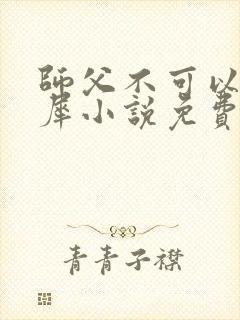 師父不可以
犀小說免費
青青子襟